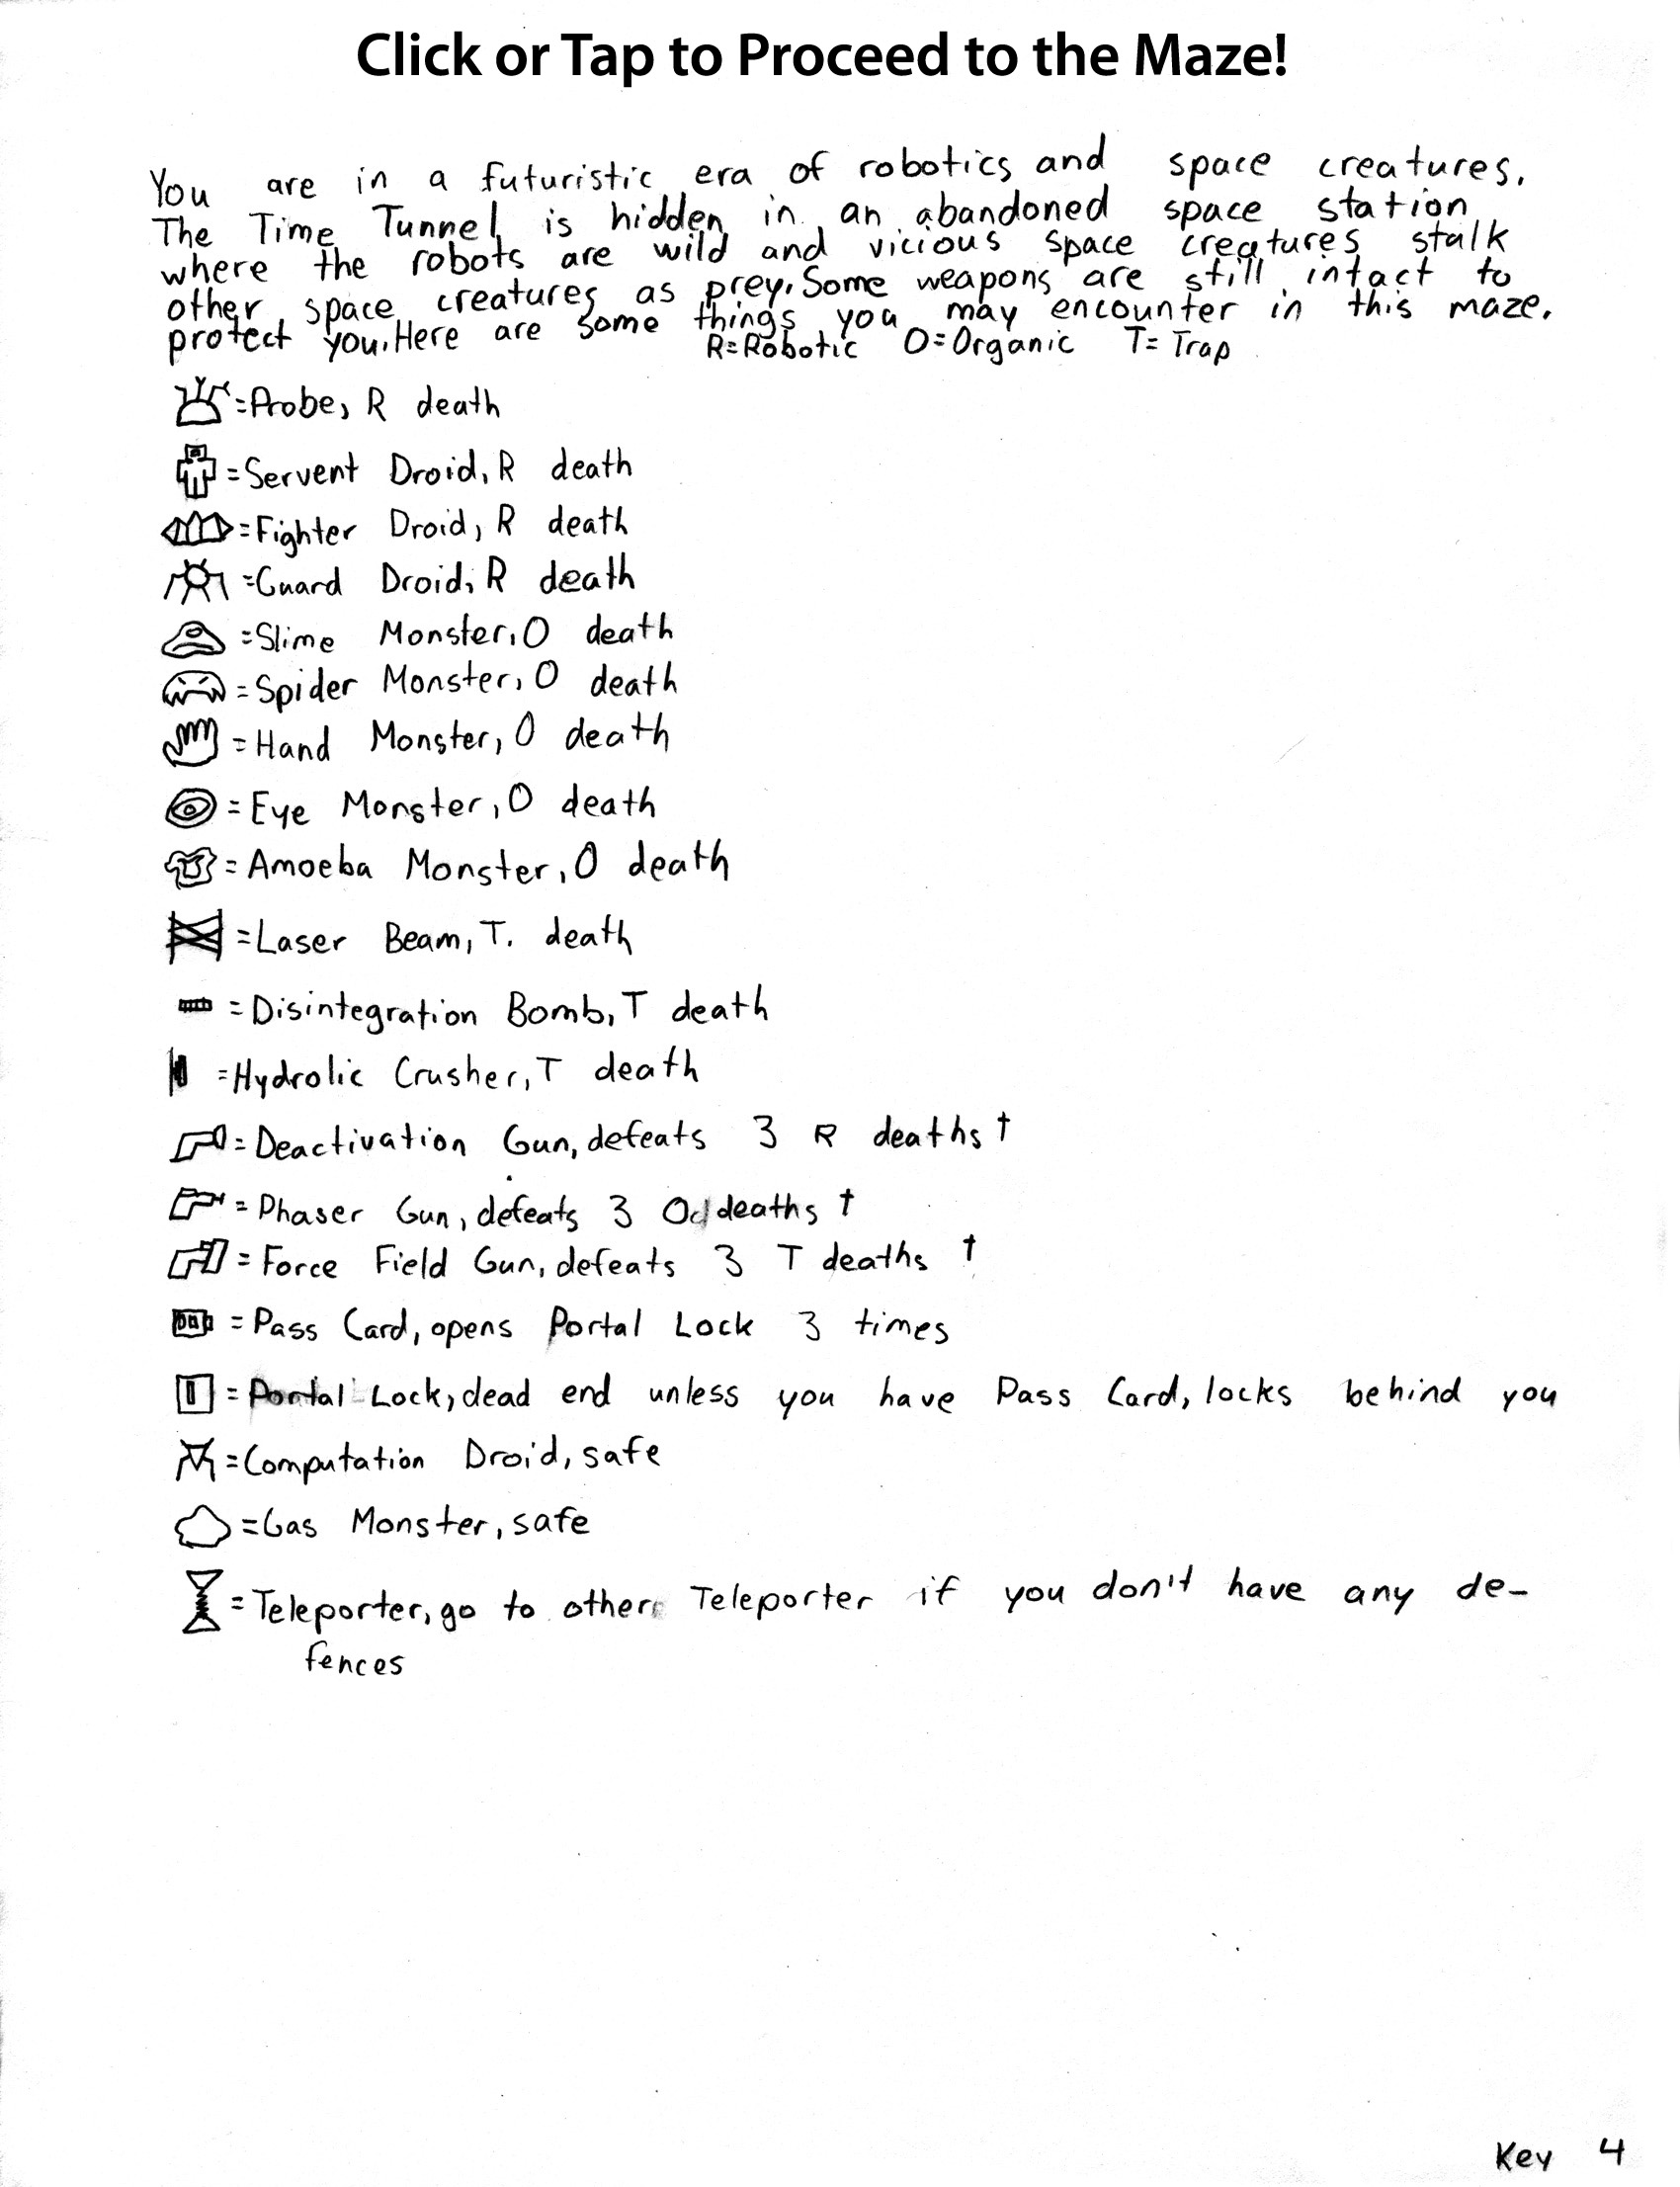 Click or Tap to Proceed to the Maze!
You are in a futuristic era of robotics and space creatures.
The Time Tunnel is hidden in an abandoned space station
where the robots are wild and vicious space creatures stalk
other space creatures as prey. Some weapons are still intact to
protect you. Here are some things you may encounter in this maze.
R=Robotic O=Organic T=Trap
=Probe, R death
=Servent Droid, R death
=Fighter Droid, R death
=Guard Droid, R death
=Slime Monster, O death
=Spider Monster, O death
=Hand Monster, O death
=Eye Monster, O death
=Amoeba Monster, O death
=Laser Beam, T. death
=Disintegration Bomb, T death
=Hydrolic Crusher, T death
=Deactivation Gun, defeats 3 R deaths †
=Phaser Gun, defeats 3 O deaths †
=Force Field Gun, defeats 3 T deaths †
=Pass Card, opens Portal Lock 3 times
=Portal Lock, dead end unless you have Pass Card, locks behind you
=Computation Droid, safe
=Gas Monster, safe
=Teleporter, go to other Teleporter if you don't have any de-
fences
Key 4